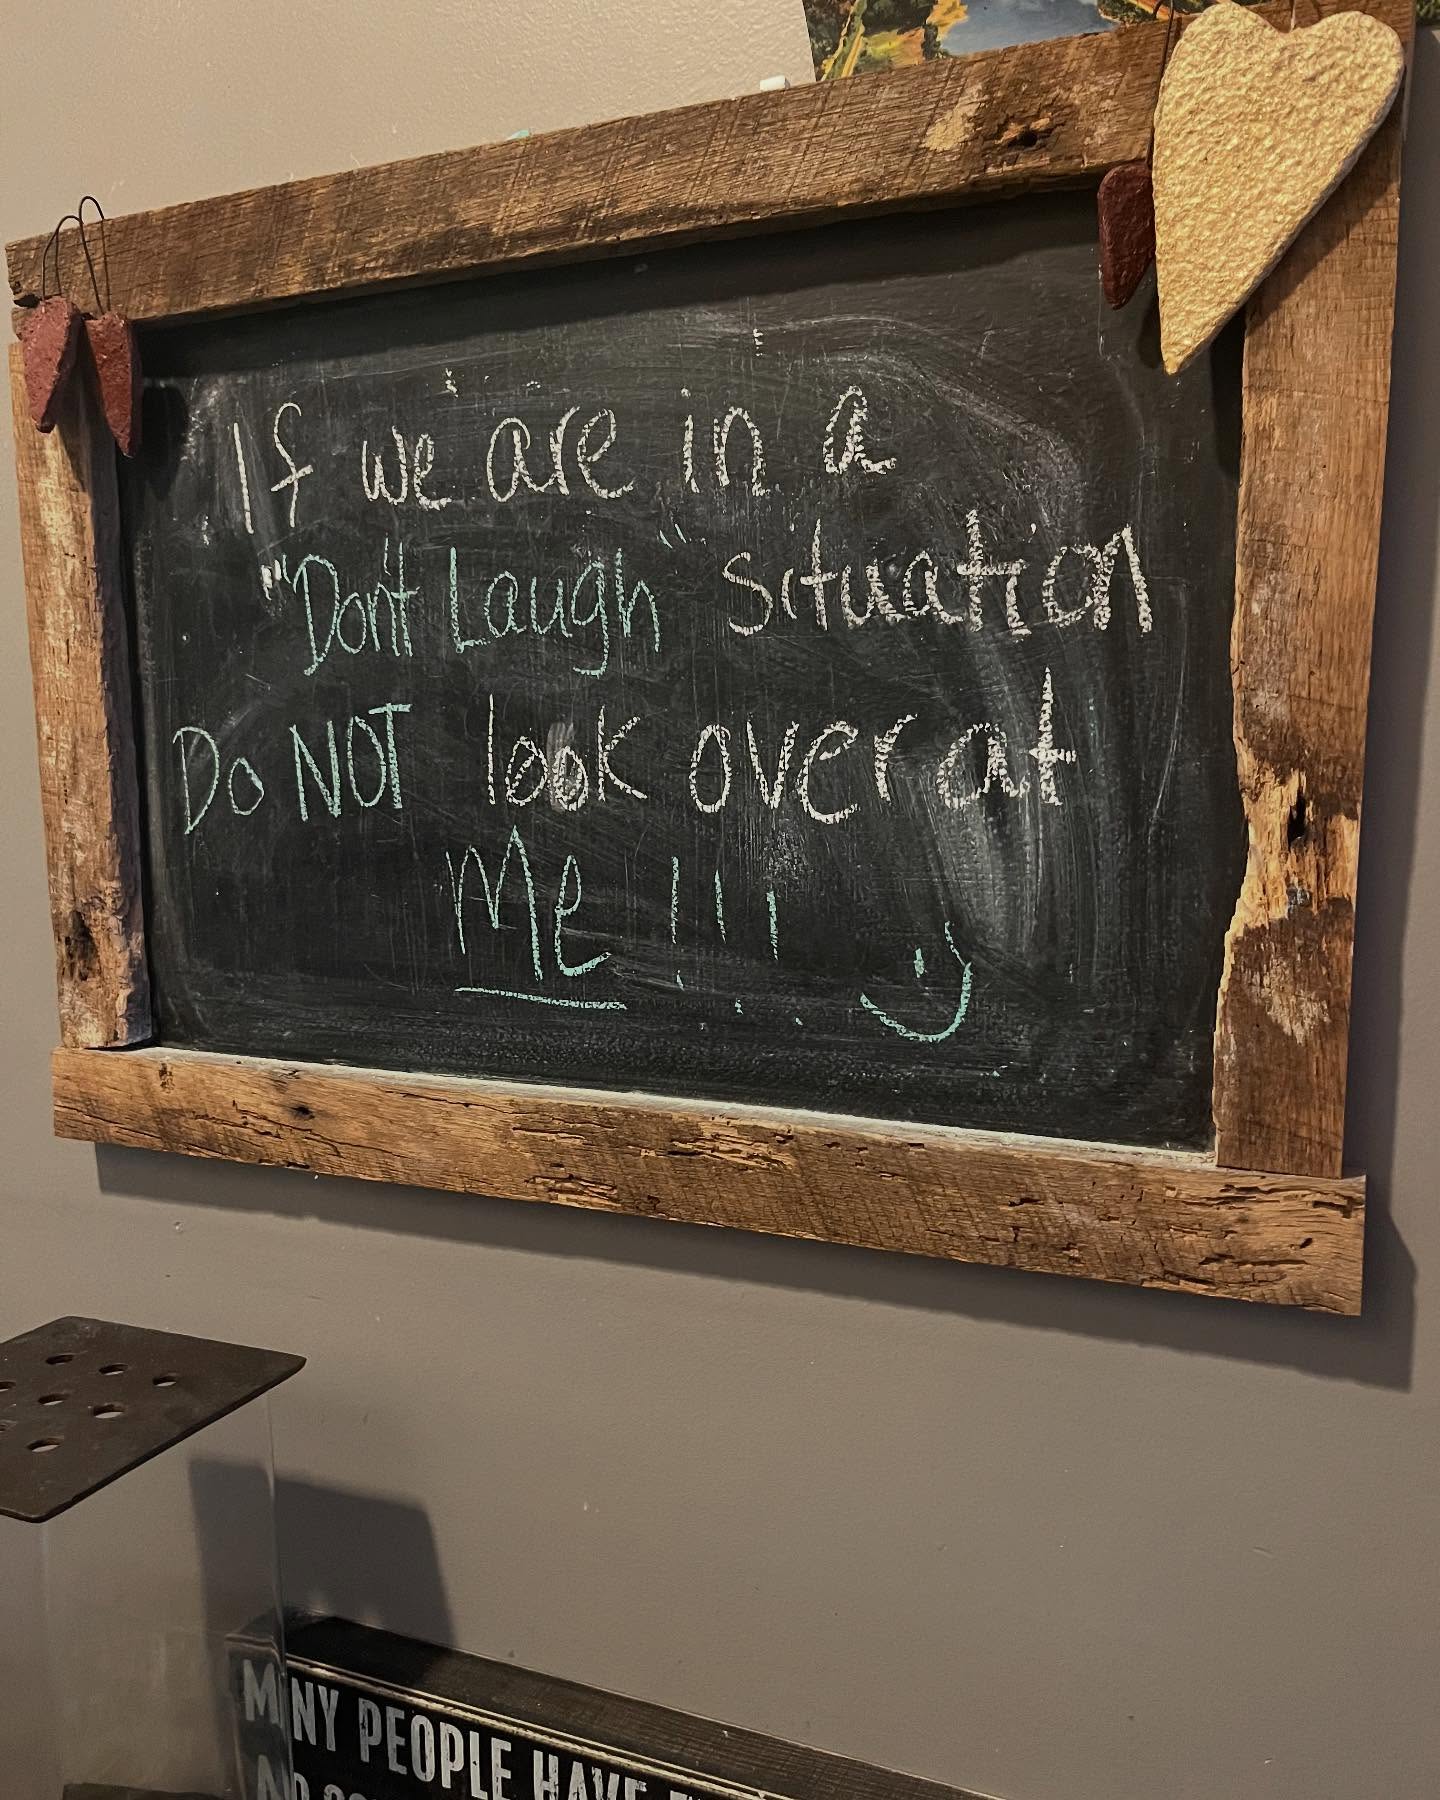 If we are in a
"Don't Laugh" situation
Do NOT look over at
Me!!!
MANY PEOPLE HAVE